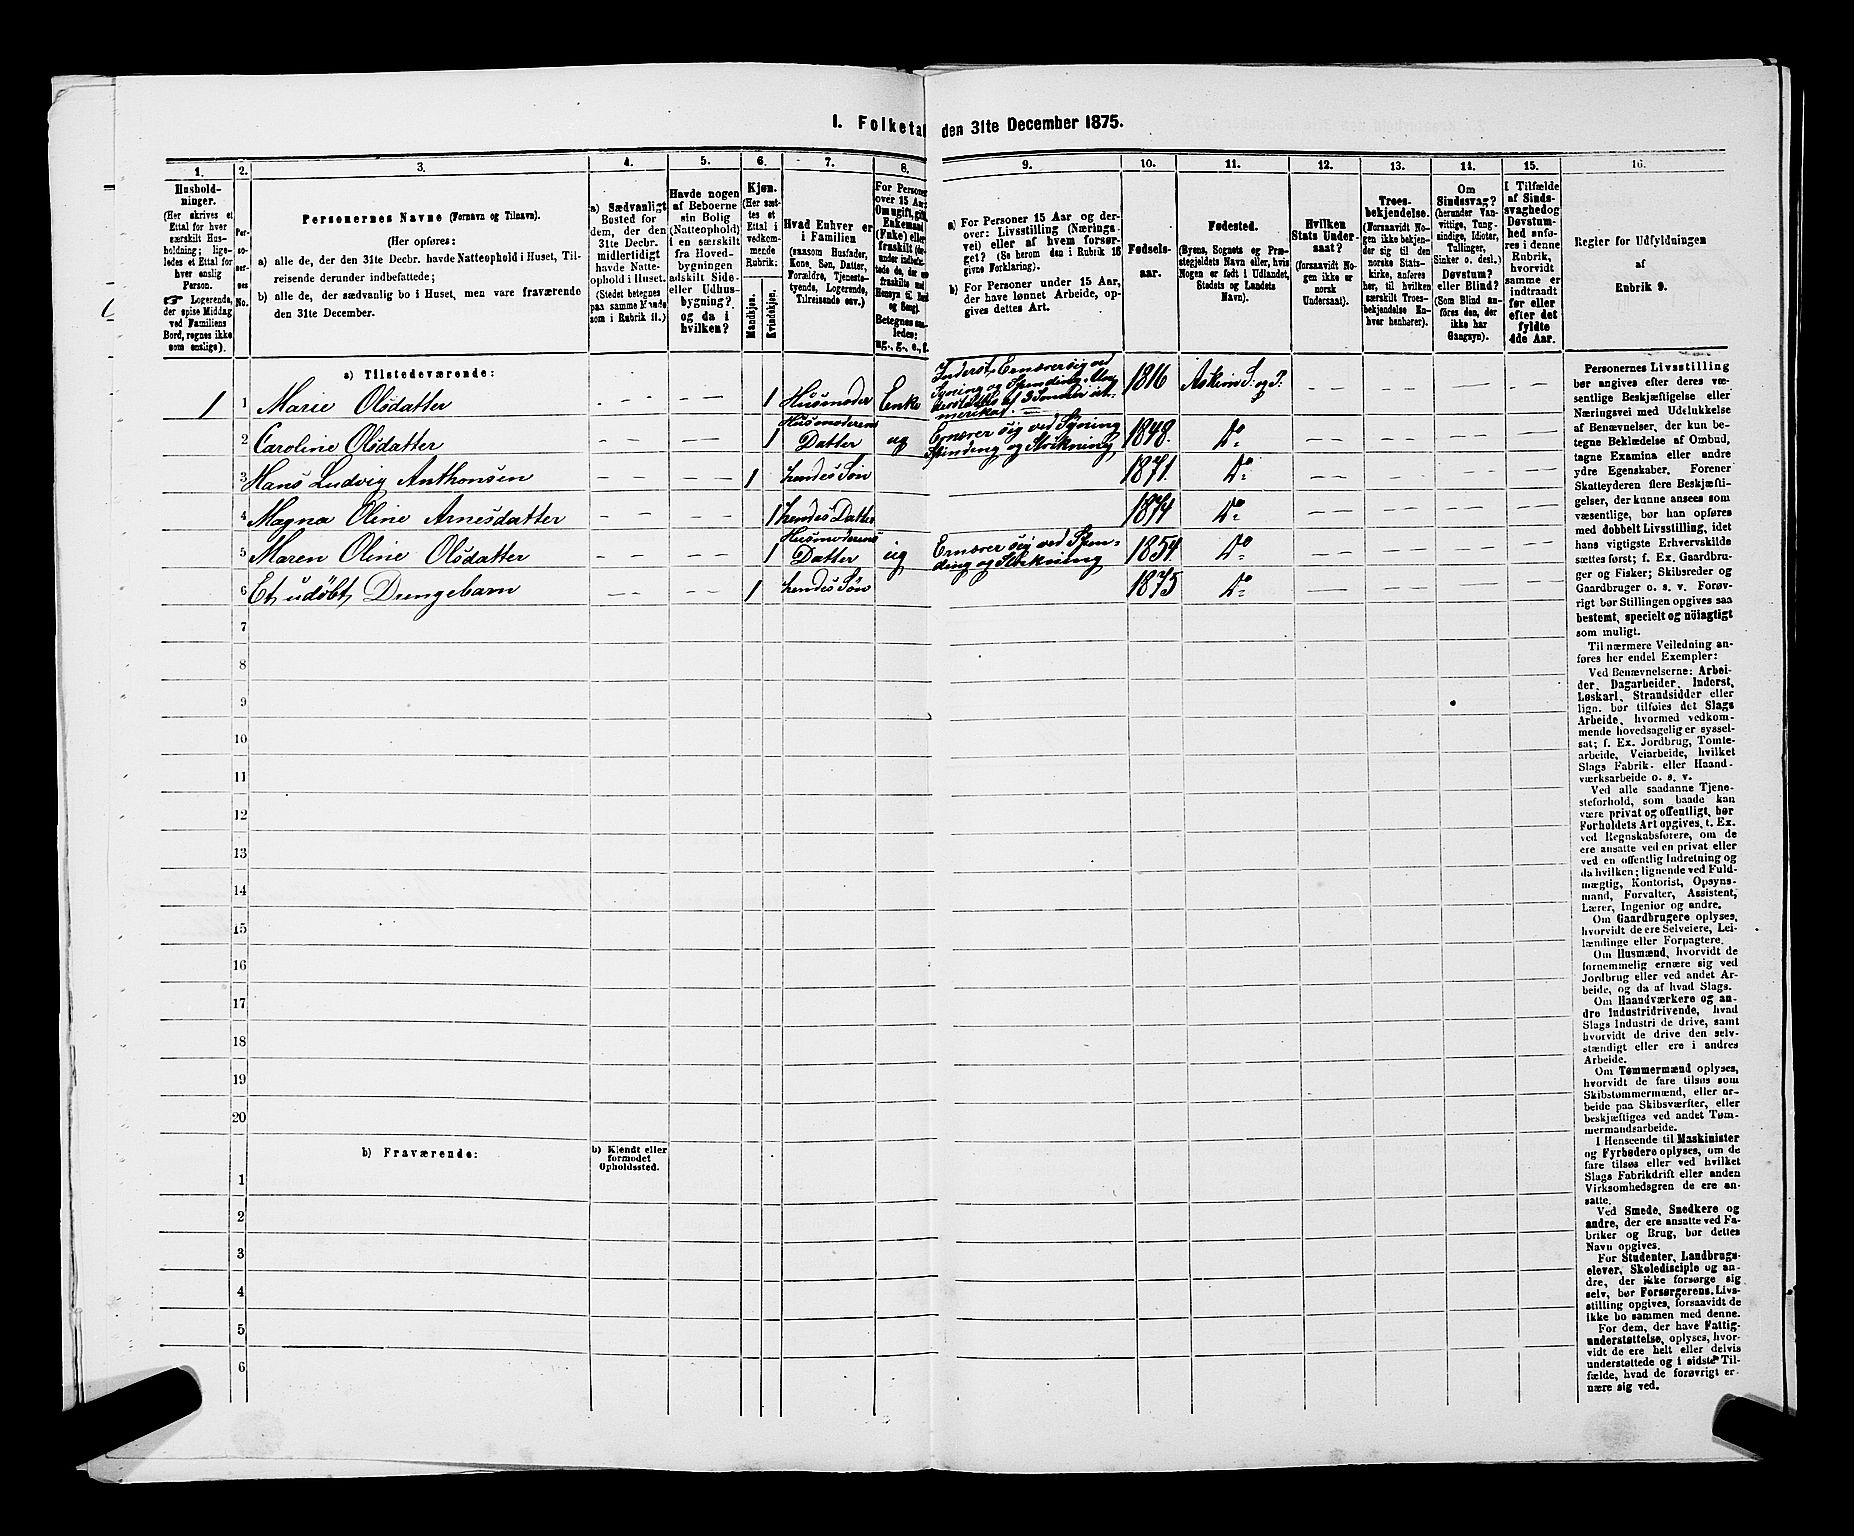 I. Folketal den 31te December 1875.
1. 2. 3. 4. 5. 6. 7. 8. 9. 10. 11. 12. 13. 14. 15. 16.
Husholdninger.
(Her skrives et
Ettal for hver
særskilt Husholdning;
ligeledes et Ettal for
hver enslig
Person.
☞ Logerende,
der spise Middag
ved Familiens
Bord, regnes ikke
som enslige).
Personernes No.
Personernes Navne (Fornavn og Tilnavn).
(Her opføres:
a) alle de, der den 31te Decbr. havde Natteophold i Huset, Tilreisende derunder indbefattede;
b) alle de, der sædvanlig bo i Huset, men vare fraværende
den 31te December.
a) Sædvanligt
Bosted for
dem, der den
31te Decbr.
midlertidigt
havde Natteophold
i Huset.
(Stedet betegnes
paa samme Maade
som i Rubrik 11.)
Havde nogen
af Beboerne
sin Bolig
(Natteophold)
i en særskilt
fra Hovedbygningen
adskilt Side-
eller Udhusbygning?
og da i
hvilken?
Kjøn.
(Her sættes et
Ettal i
vedkommende
Rubrik.
Mandkjøn.
Kvindekjøn.
Hvad Enhver er
i Familien
(saasom Husfader,
Kone, Søn, Datter,
Forældre, Tjenestetyende, Logerende,
Tilreisende osv.)
For Personer
over 15 Aar:
Om ugift, gift,
Enkemand
(Enke) eller
fraskilt
Betegnes saaledes:
ug., g., e., f.
a) For Personer 15 Aar og derover: Livsstilling (Næringsvei) eller af hvem forsørget? (Se herom den i Rubrik 16
givne Forklaring).
b) For Personer under 15 Aar,
der have lønnet Arbeide, opgives dettes Art.
Fødselsaar.
Fødested.
(Byens, Sognets og Præstegjeldets Navn eller, hvis
Nogen er født i Udlandet,
Stedets og Landets
Navn).
Hvilken
Stats Undersaat?
(forsaavidt Nogen ikke er
norsk
Undersaat).
Troesbekjendelse.
(Forsaavidt Nogen ikke bekjender sig til den
norske Statskirke, anføres
her, til hvilken
særskilt Troesbekjendelse Enhver henhører).
Om
Sindssvag?
(herunder Vanvittige, Tungsindige, Idioter,
Tullinger,
Sinker o. desl.)
Døvstum?
eller Blind?
(Som Blind anføres den, der
ikke har
Gangsyn).
I Tilfælde
af Sindssvaghed og
Døvstumhed anføres i denne
Rubrik,
hvorvidt
samme er
indtraadt
før eller
efter det
fyldte
4de Aar.
Regler for Udfyldningen
af
Rubrik 9.
a) Tilstedeværende:
1 1 Marie Olsdatter - - - - - 1 Husmoder Enke Inderst, Ernærer sig ved Syning og Spinding, Understøttes af 3 Sønner i Amerika. 1816 Askim S. og P.
2 Caroline Olsdatter - - - - - 1 Husmoderens Datter ug Ernærer sig ved Syning Spinding og Strikning 1848. Do
3 Hans Ludvig Anthonsen - - - - - 1 hendes Søn 1871. Do
4 Magna Oline Arnesdatter - - - - 1 hendes Datter 1874 Do
5 Maren Oline Olsdatter - - - - 1 Husmoderens Datter ug Ernærer sig ved Spinding og Strikning 1854 Do
6 Et udøbt Drengebarn - - - - 1 hendes Søn 1875 Do
7
8
9
10
11
12
13
14
15
16
17
18
19
20
b) Fraværende:
b) Kjendt eller
formodet
Opholdssted.
1
2
3
4
5
6
Personernes Livsstilling
bør angives efter deres væsentlige Beskjæftigelse eller
Næringsvei med Udelukkelse
af Benævnelser, der kun betegne Beklædelse af Ombud,
tagne Examina eller andre
ydre Egenskaber. Forener
Skatteyderen flere Beskjæftigelser, der kunne ansees som
væsentlige, bør han opføres
med dobbelt Livsstilling, idet
hans vigtigste Erhvervskilde
sættes først; f. Ex. Gaardbruger og Fisker; Skibsreder og
Gaardbruger o. s. v. Forøvrigt bør Stillingen opgives saa
bestemt, specielt og nöiagtigt
som muligt.
Til nærmere Veiledning anføres her endel Exempler:
Ved Benævnelserne: Arbeider, Dagarbeider, Inderst,
Løskarl, Strandsidder eller
lign. bør tilføies det Slags
Arbeide, hvormed vedkommende hovedsagelig er sysselsat; f. Ex. Jordbrug, Tomtearbeide, Veiarbeide, hvilket
Slags Fabrik- eller Haandværksarbeide o. s. v.
Ved alle saadanne Tjenesteforhold, som baade kan
være privat og offentligt, bør
Forholdets Art opgives, t. Ex.
ved Regnskabsførere, om de
ere ansatte ved en privat eller
ved en offentlig Indretning og
da hvilken; lignende ved Fuldmægtig, Kontorist, Opsynsmand, Forvalter, Assistent,
Lærer, Ingeniør og andre.
Om Gaardbrugere oplyses,
hvorvidt de ere Selveiere, Leilændinge eller Forpagtere.
Om Husmænd, hvorvidt de
fornemmelig ernære sig ved
Jordbrug eller ved andet Arbeide, og da af hvad Slags.
Om Haandværkere og andre Industridrivende, hvad
Slags Industri de drive, samt
hvorvidt de drive den selvstændigt eller ere i andres
Arbeide.
Om Tømmermænd oplyses,
hvorvidt de fare tilsøs som
Skibstømmermænd, eller arbeide paa Skibsværfter, eller
beskjæftiges ved andet Tømmermandsarbeide.
I Henseende til Maskinister
og Fyrbødere oplyses, om de
fare tilsøs eller ved hvilket
Slags Fabrikdrift eller anden
Virksomhedsgren de ere ansatte.
Ved Smede, Snedkere og
andre, der ere ansatte ved Fabriker og Brug, bør dettes
Navn opgives.
For Studenter, Landbrugselever, Skoledisciple og andre, der ikke forsørge sig
selv, bør Forsørgerens Livsstilling opgives, forsaavidt de
ikke bo sammen med denne.
For dem, der have Fattigunderstøttelse, oplyses, hvorvidt de ere helt eller delvis
understøttede og i sidste Tilfælde, hvad de forøvrigt ernære sig ved.